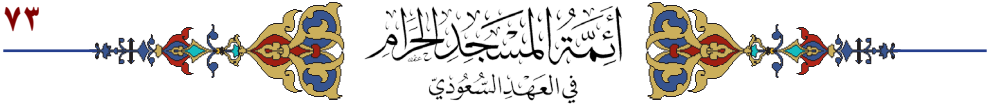 ٧٣
أَئِمَّةُ المَسْجِدِ الحَرَامِ
في العَهْدِ السُّعُودِيّ